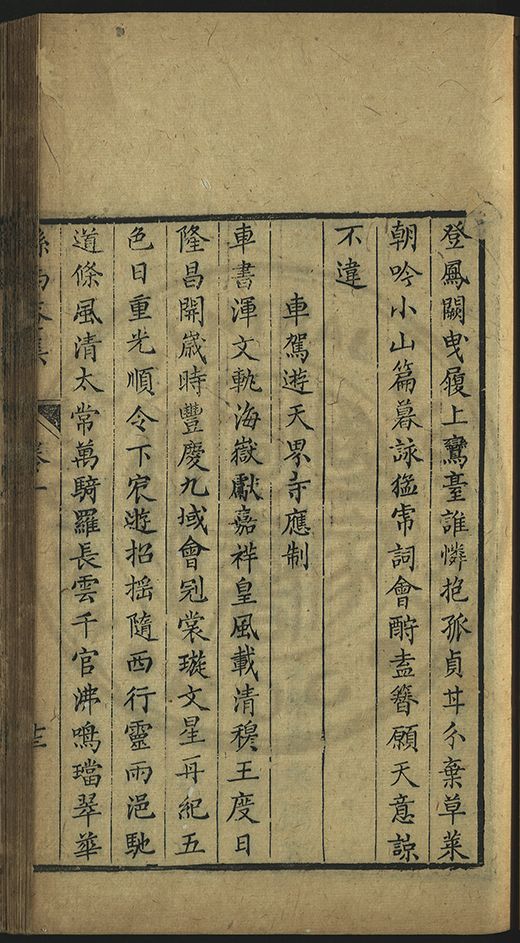 登鳳闕曳履上鸞臺誰憐抱孤貞甘分棄草萊
朝吟小山篇暮詠猛虎詞會酧盍簪願天意諒
不違
車駕遊天界寺應制
車書渾文軌海嶽獻嘉祥皇風載清穆王度日
隆昌開歲時豐慶九域會冠裳璇文星再紀五
色日重光順令下宸遊招揺隨西行靈雨浥馳
道條風清太常萬騎羅長雲千官沸鳴璫翠華
卷一
十三